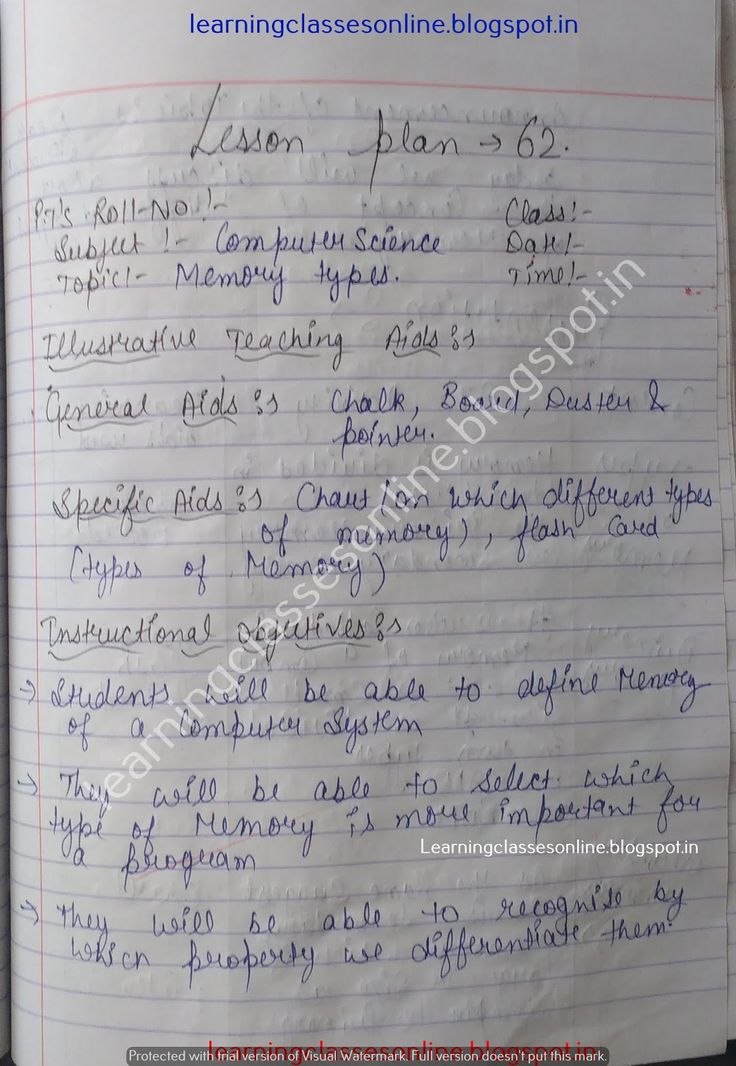 learningclassesonline.blogspot.in
Lesson plan → 62.
P.T's Roll-No :- Class :-
Subject :- Computer Science Date :-
Topic :- Memory types. Time :-
Illustrative Teaching Aids :→
General Aids :→ Chalk, Board, Duster &
pointer.
Specific Aids :→ Chart (on which different types
of memory), flash Card
(types of Memory)
Instructional Objectives :→
→ Students will be able to define Memory
of a Computer System
→ They will be able to select which
type of Memory is more important for
a program
Learningclassesonline.blogspot.in
→ They will be able to recognise by
which property we differentiate them.
learningclassesonline.blogspot.in
learningclassesonline.blogspot.in
Protected with trial version of Visual Watermark. Full version doesn't put this mark.